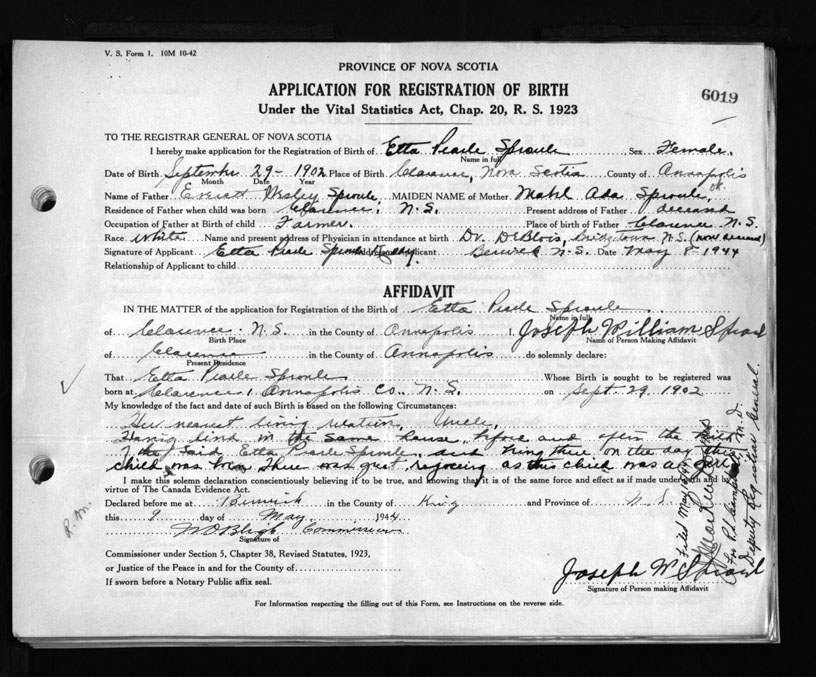 V. S. Form 1. 10M 10-42
PROVINCE OF NOVA SCOTIA
APPLICATION FOR REGISTRATION OF BIRTH
6019
Under the Vital Statistics Act, Chap. 20, R. S. 1923
TO THE REGISTRAR GENERAL OF NOVA SCOTIA
I hereby make application for the Registration of Birth of Etta Pearle Sproule Sex Female.
Name in full
Date of Birth September 29 - 1902 Place of Birth Clarence, Nova Scotia County of Annapolis
Month Date Year
Name of Father Everett Wesley Sproule, MAIDEN NAME of Mother Mabel Ada Sproule, ok.
Residence of Father when child was born Clarence, N.S. Present address of Father deceased
Occupation of Father at Birth of child Farmer. Place of birth of Father Clarence N.S.
Race White Name and present address of Physician in attendance at birth Dr. DeBlois, Bridgetown N.S. (now deceased)
Signature of Applicant Etta Pearle Sproule Applicant Berwick N.S. Date May 8 - 1944
Relationship of Applicant to child
AFFIDAVIT
IN THE MATTER of the application for Registration of the Birth of Etta Pearle Sproule.
Name in full
of Clarence. N.S. in the County of Annapolis I, Joseph William
Birth Place Name of Person Making Affidavit
of Clarence in the County of Annapolis do solemnly declare:
Present Residence
That Etta Pearle Sproule Whose Birth is sought to be registered was
born at Clarence, Annapolis Co., N.S. on Sept. 29, 1902
My knowledge of the fact and date of such Birth is based on the following Circumstances:
Her nearest living relation, Uncle,
Having lived in the same house, before and after the birth
of the said Etta Pearle Sproule, and being there on the day this
child was born. There was great rejoicing as this child was a girl.
I make this solemn declaration conscientiously believing it to be true, and knowing that it is of the same force and effect as if made under oath and by
virtue of The Canada Evidence Act.
Declared before me at Berwick in the County of King and Province of N.S.
this 8 day of May 1944
Commissioner
Signature of
Commissioner under Section 5, Chapter 38, Revised Statutes, 1923,
or Justice of the Peace in and for the County of
If sworn before a Notary Public affix seal.
Joseph W
Signature of Person making Affidavit
For Information respecting the filling out of this Form, see Instructions on the reverse side.
R.M.
Filed May
For M.D.
Deputy Registrar General.